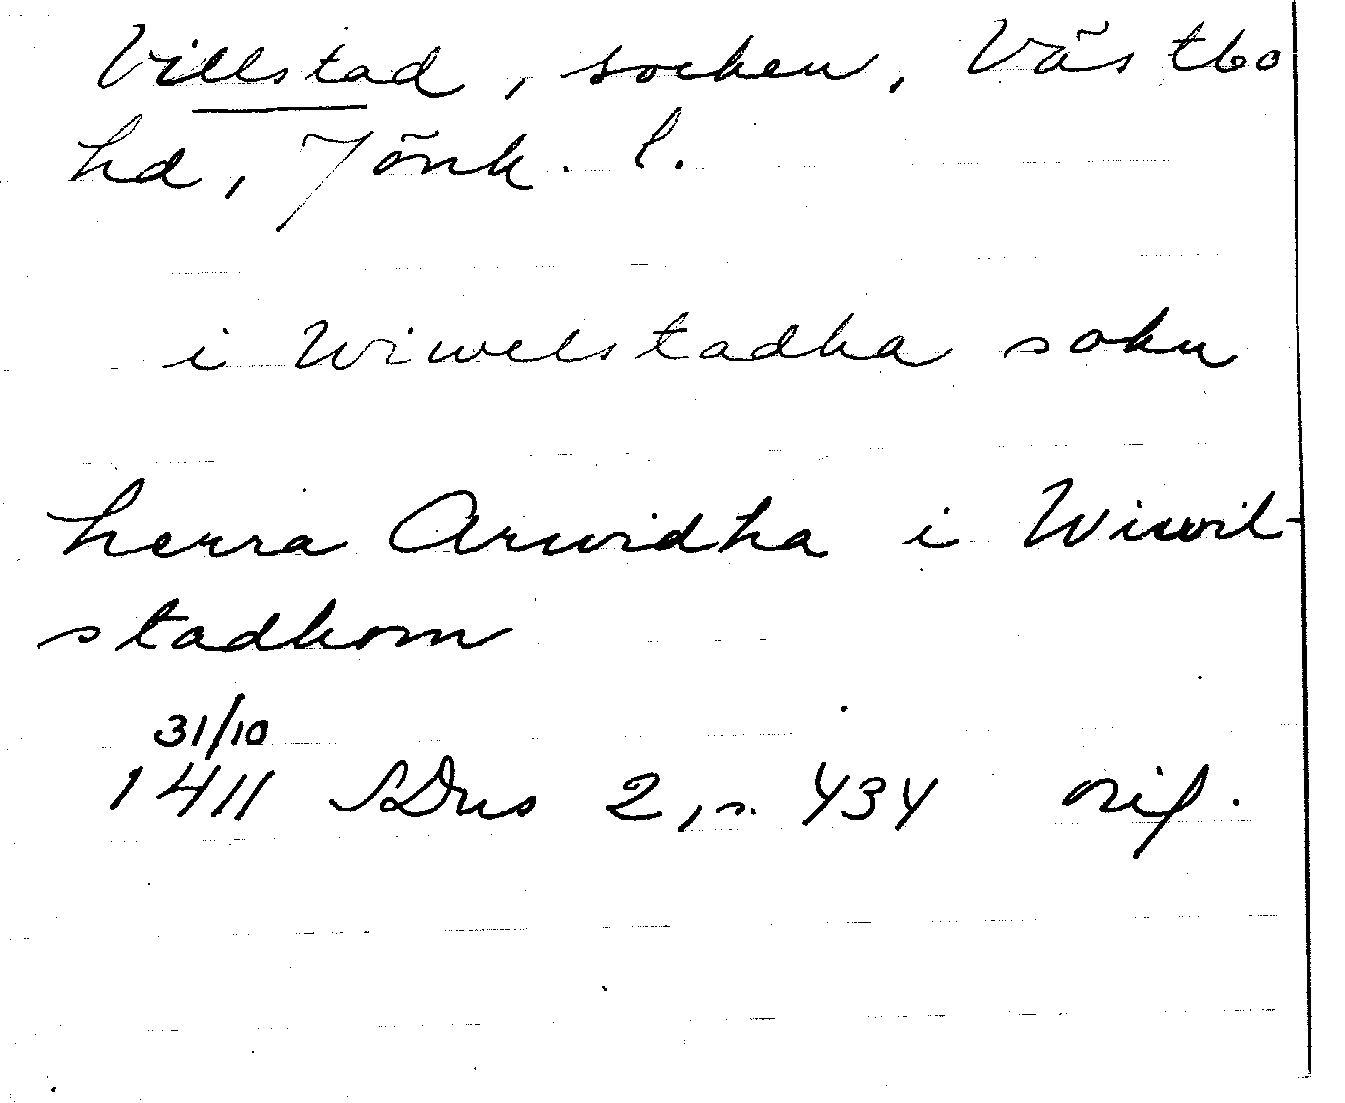 Villstad, socken, Västbo
hd, Jönk. l.
i Wiwelstadha sokn
herra Arwidha i Wiwil-
stadhom
31/10
1411 SDns 2, s. 434 orig.